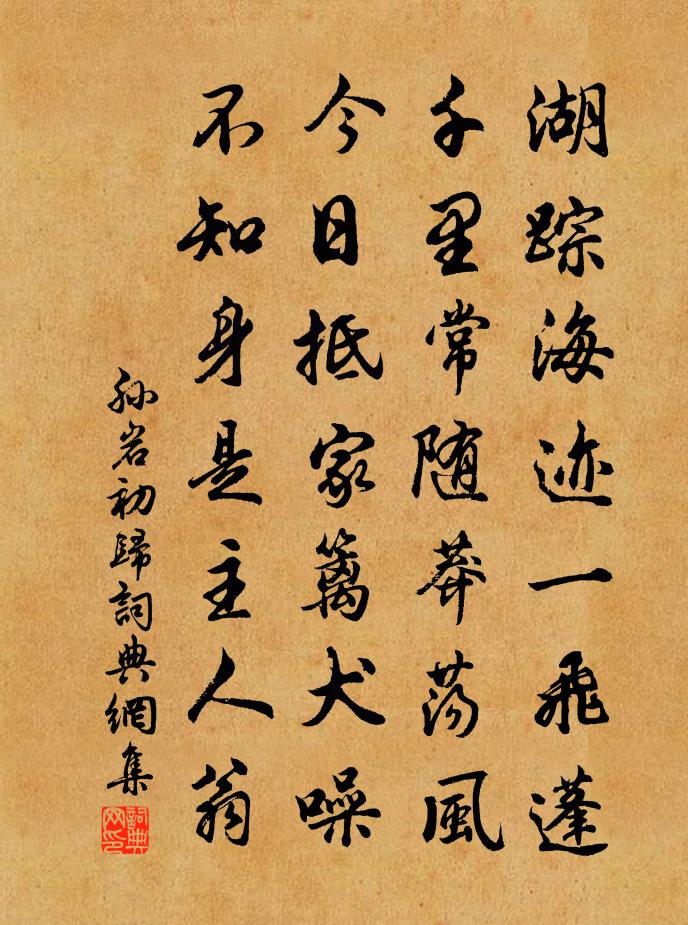 湖踪海迹一飛蓬
千里常随莽荡風
今日抵家篱犬噪
不知身是主人翁
孙岩初歸詞典網集
詞典网印